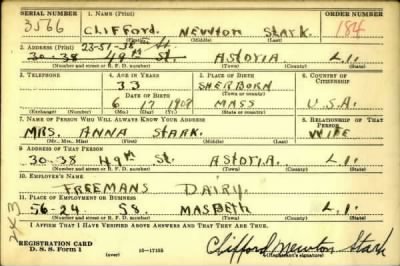 SERIAL NUMBER 1. NAME (Print) ORDER NUMBER
3566 CLIFFORD. NEWTON STARK. 184
(First) (Middle) (Last)
2. ADDRESS (Print) 23-51-38 St.
30-38 49th St. ASTORIA L.I.
(Number and street or R. F. D. number) (Town) (County) (State)
3. TELEPHONE 4. AGE IN YEARS 5. PLACE OF BIRTH 6. COUNTRY OF CITIZENSHIP
33 SHERBORN
DATE OF BIRTH (Town or county)
6 17 1907 MASS U.S.A.
(Exchange) (Number) (Mo.) (Day) (Yr.) (State or country)
7. NAME OF PERSON WHO WILL ALWAYS KNOW YOUR ADDRESS 8. RELATIONSHIP OF THAT PERSON
MRS. ANNA STARK. WIFE
(Mr., Mrs., Miss) (First) (Middle) (Last)
9. ADDRESS OF THAT PERSON
30-38 49th St. ASTORIA. L.I.
(Number and street or R. F. D. number) (Town) (County) (State)
10. EMPLOYER'S NAME
FREEMANS DAIRY.
11. PLACE OF EMPLOYMENT OR BUSINESS
56-24 58. MASPETH L.I.
(Number and street or R. F. D. number) (Town) (County) (State)
I AFFIRM THAT I HAVE VERIFIED ABOVE ANSWERS AND THAT THEY ARE TRUE.
REGISTRATION CARD
D. S. S. Form 1 (over) 16-17105 Clifford Newton Stark
(Registrant's signature)